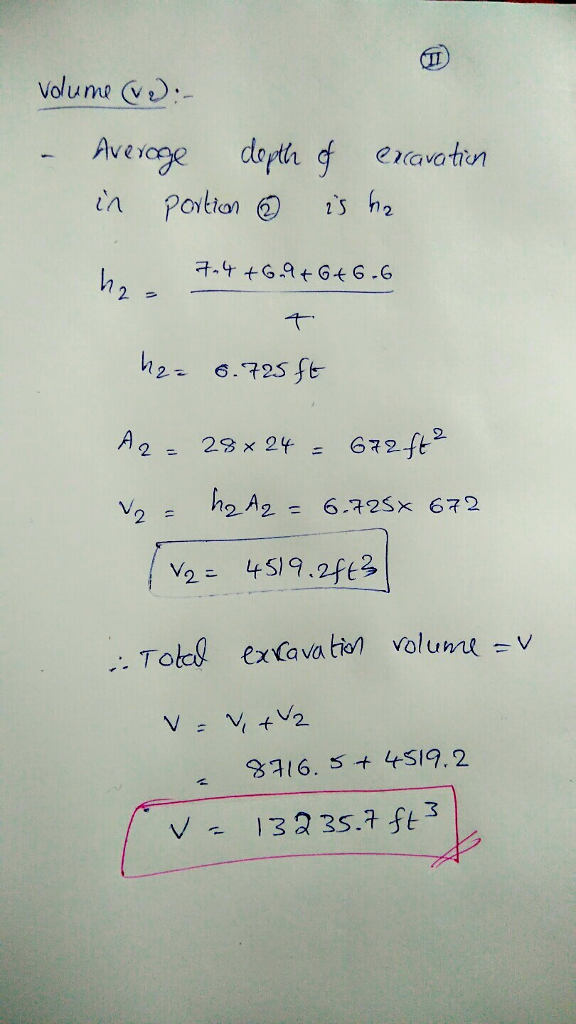 II
Volume (V2):-
- Average depth of excavation
in portion ② is h2
h2 = 7.4 + 6.9 + 6 + 6.6
4
h2 = 6.725 ft
A2 = 28 x 24 = 672 ft²
V2 = h2 A2 = 6.725 x 672
V2 = 4519.2 ft3
∴ Total excavation volume = V
V = V1 + V2
= 8716.5 + 4519.2
V = 13235.7 ft³